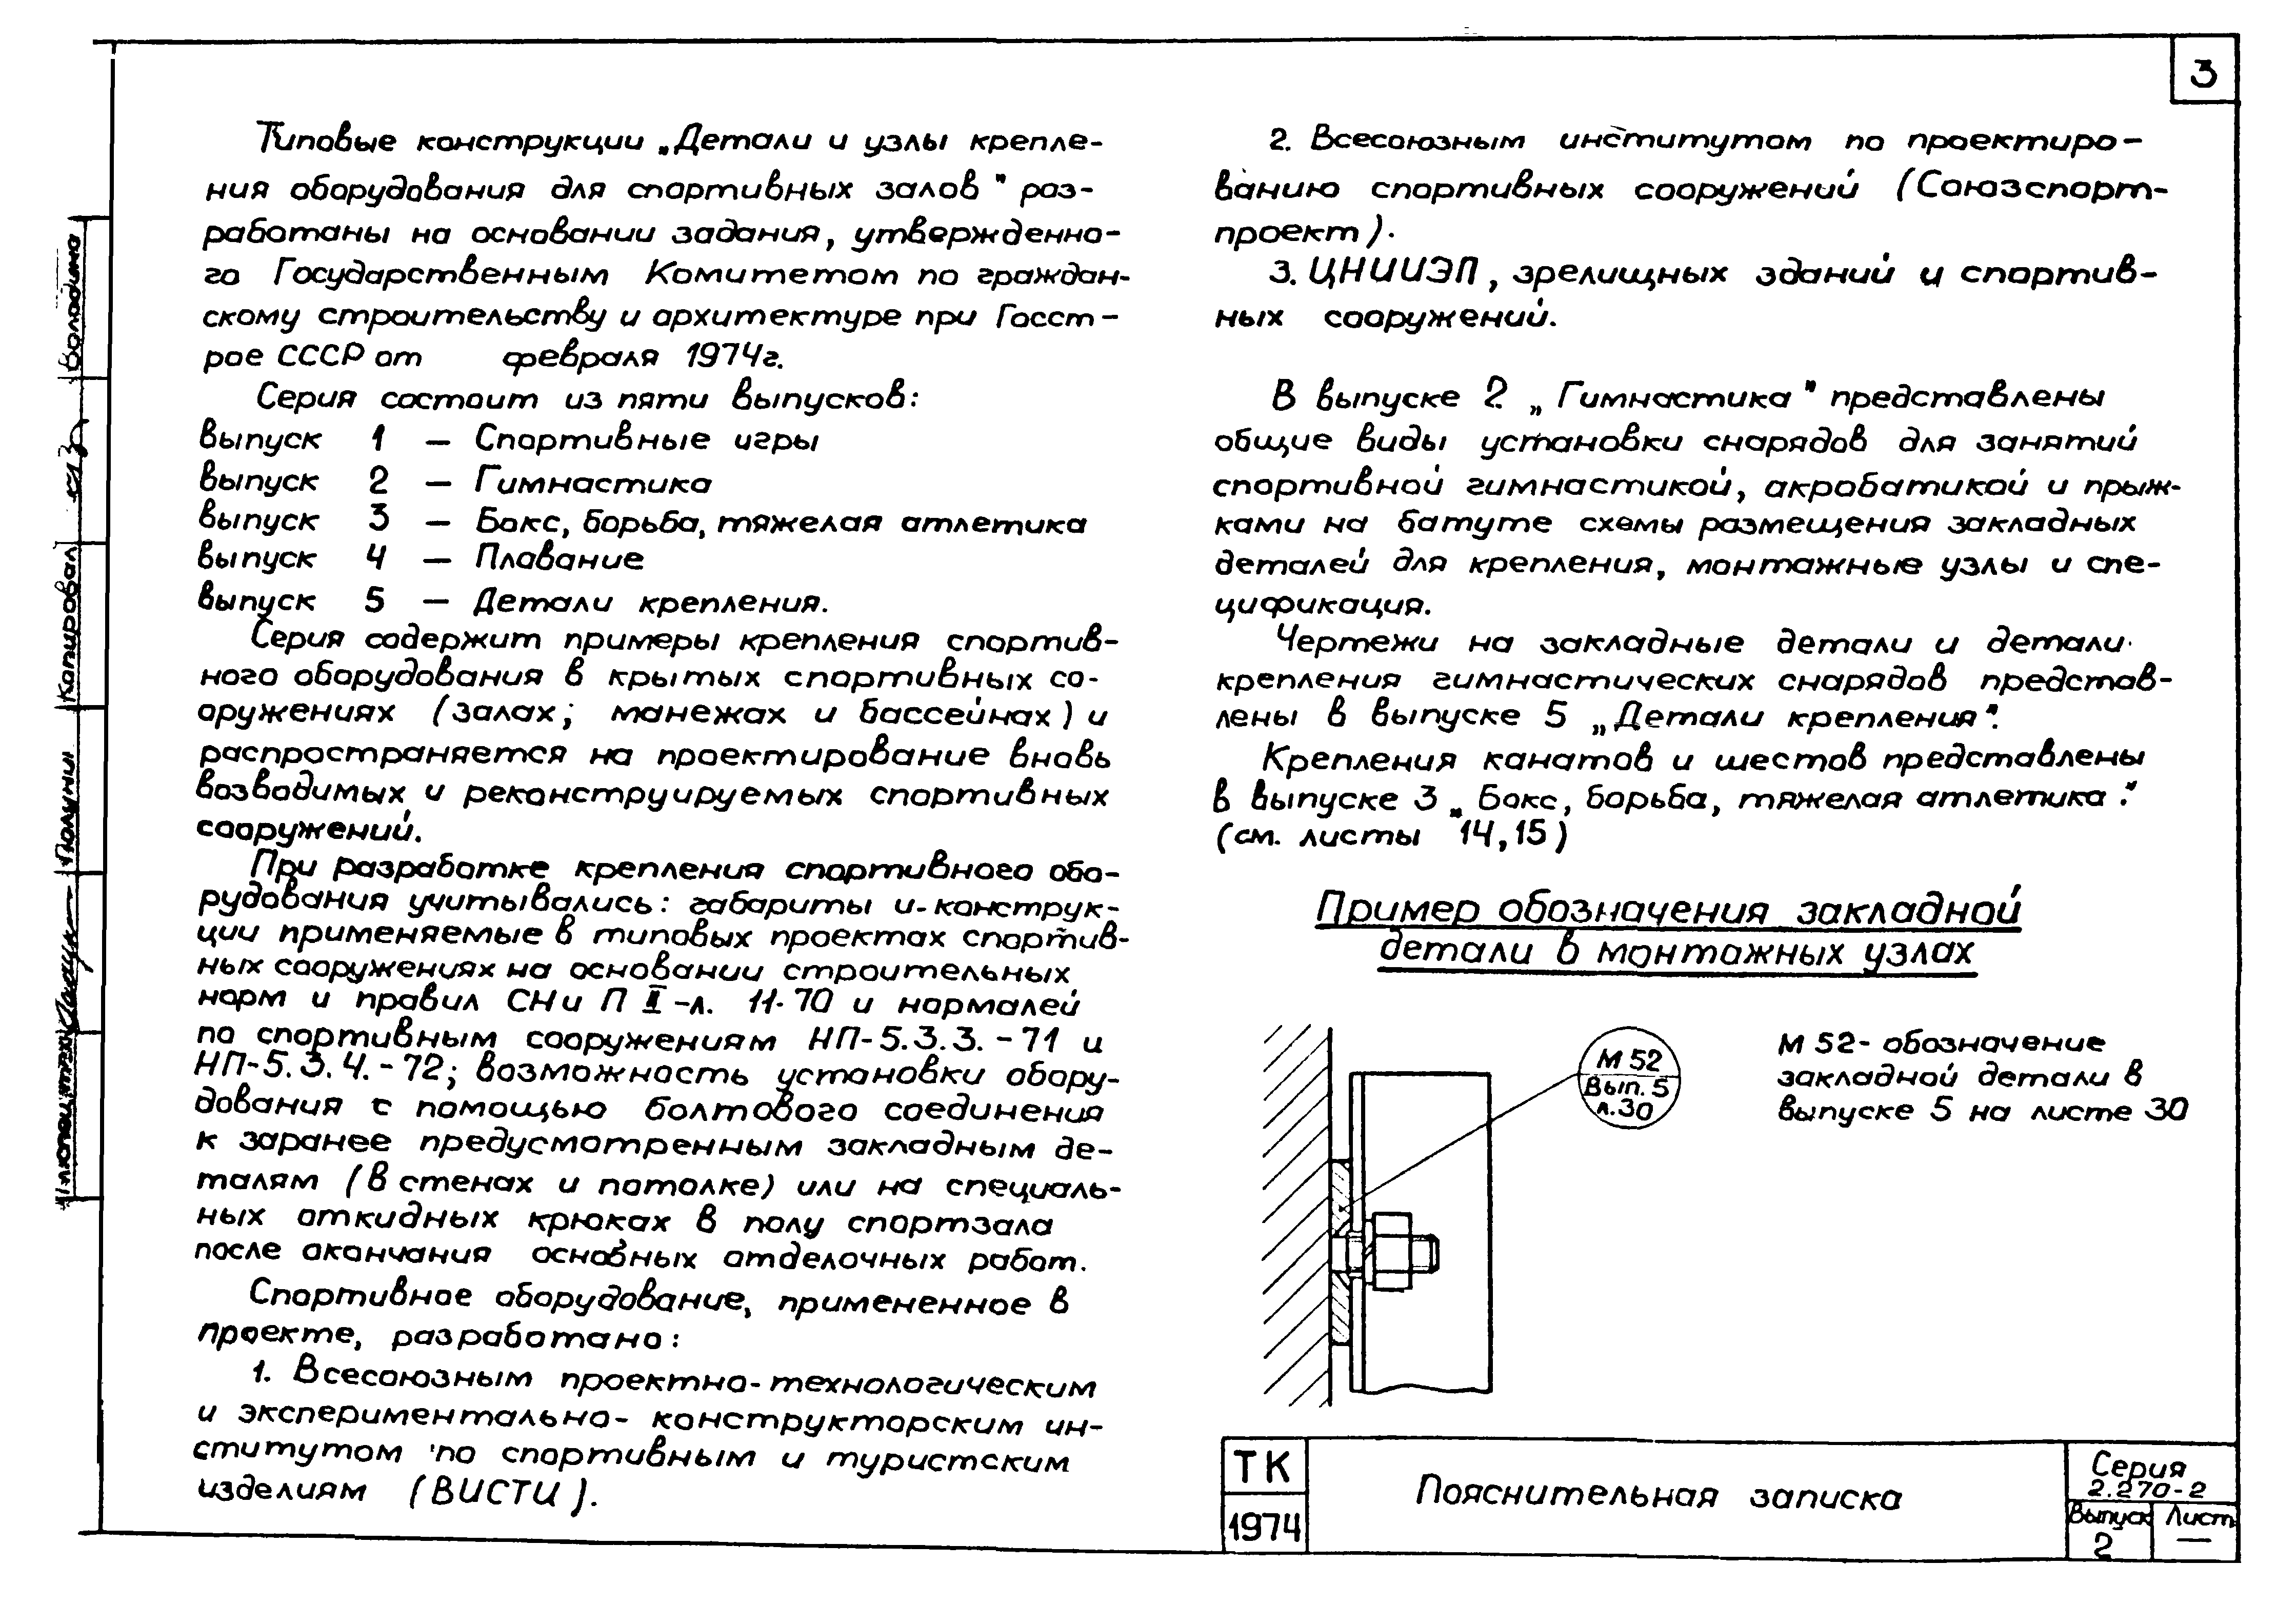 3
Типовые конструкции „Детали и узлы крепле-
ния оборудования для спортивных залов" раз-
работаны на основании задания, утвержденно-
го Государственным Комитетом по граждан-
скому строительству и архитектуре при Госст-
рое СССР от февраля 1974г.
Серия состоит из пяти выпусков:
выпуск 1 – Спортивные игры
выпуск 2 – Гимнастика
выпуск 3 – Бокс, борьба, тяжелая атлетика
выпуск 4 – Плавание
выпуск 5 – Детали крепления.
Серия содержит примеры крепления спортив-
ного оборудования в крытых спортивных со-
оружениях (залах; манежах и бассейнах) и
распространяется на проектирование вновь
возводимых и реконструируемых спортивных
сооружений.
При разработке крепления спортивного обо-
рудования учитывались: габариты и-конструк-
ции применяемые в типовых проектах спортив-
ных сооружениях на основании строительных
норм и правил СНиП II-л. 11-70 и нормалей
по спортивным сооружениям НП-5.3.3.-71 и
НП-5.3.4.-72; возможность установки обору-
дования с помощью болтового соединения
к заранее предусмотренным закладным де-
талям (в стенах и потолке) или на специаль-
ных откидных крюках в полу спортзала
после окончания основных отделочных работ.
Спортивное оборудование, примененное в
проекте, разработано:
1. Всесоюзным проектно-технологическим
и экспериментально-конструкторским ин-
ститутом по спортивным и туристским
изделиям (ВИСТИ).
2. Всесоюзным институтом по проектиро-
ванию спортивных сооружений (Союзспорт-
проект).
3. ЦНИИЭП, зрелищных зданий и спортив-
ных сооружений.
В выпуске 2 „Гимнастика" представлены
общие виды установки снарядов для занятий
спортивной гимнастикой, акробатикой и прыж-
ками на батуте схемы размещения закладных
деталей для крепления, монтажные узлы и спе-
цификация.
Чертежи на закладные детали и детали
крепления гимнастических снарядов представ-
лены в выпуске 5 „Детали крепления".
Крепления канатов и шестов представлены
в выпуске 3 „Бокс, борьба, тяжелая атлетика".
(см. листы 14,15)
Пример обозначения закладной
детали в монтажных узлах
М 52
Вып. 5
л.30
М 52- обозначение
закладной детали в
выпуске 5 на листе 30
ТК
1974
Пояснительная записка
Серия
2.270-2
Выпуск
2
Лист
—
Володина
Копировал
Полунин